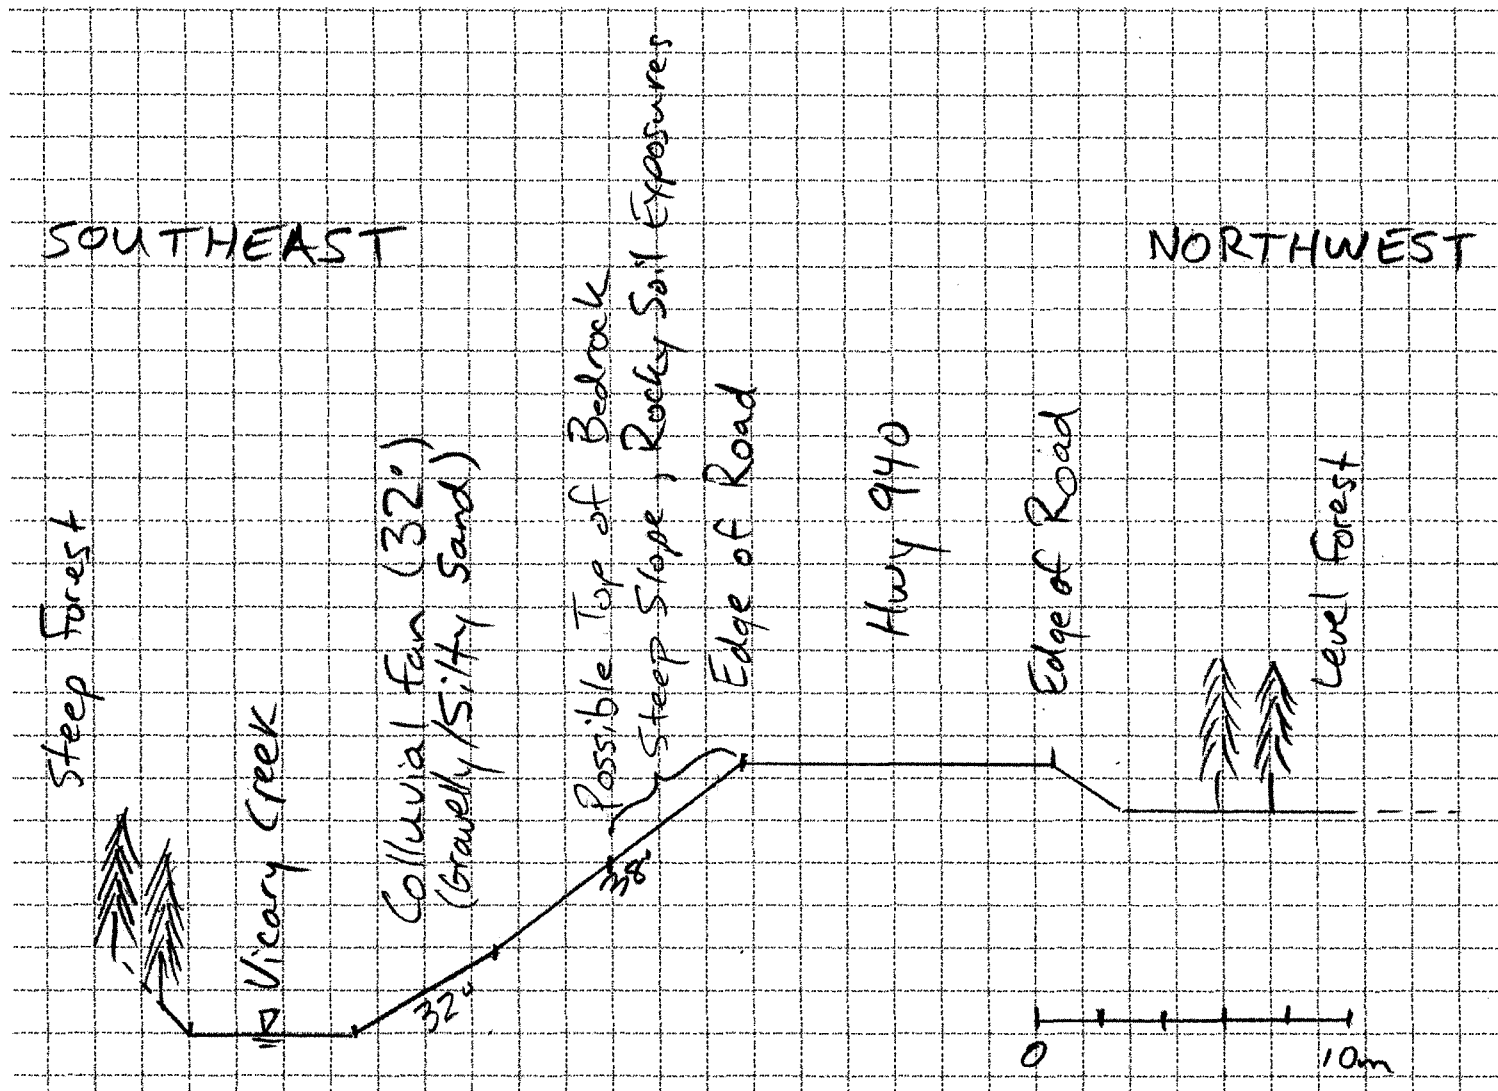 SOUTHEAST
NORTHWEST
Steep Forest
Vicary Creek
Colluvial Fan (32°)
(Gravelly/Silty Sand)
Possible Top of Bedrock
Steep Slope, Rocky Soil Exposures
Edge of Road
Hwy 940
Edge of Road
Level Forest
32°
38°
0
10m